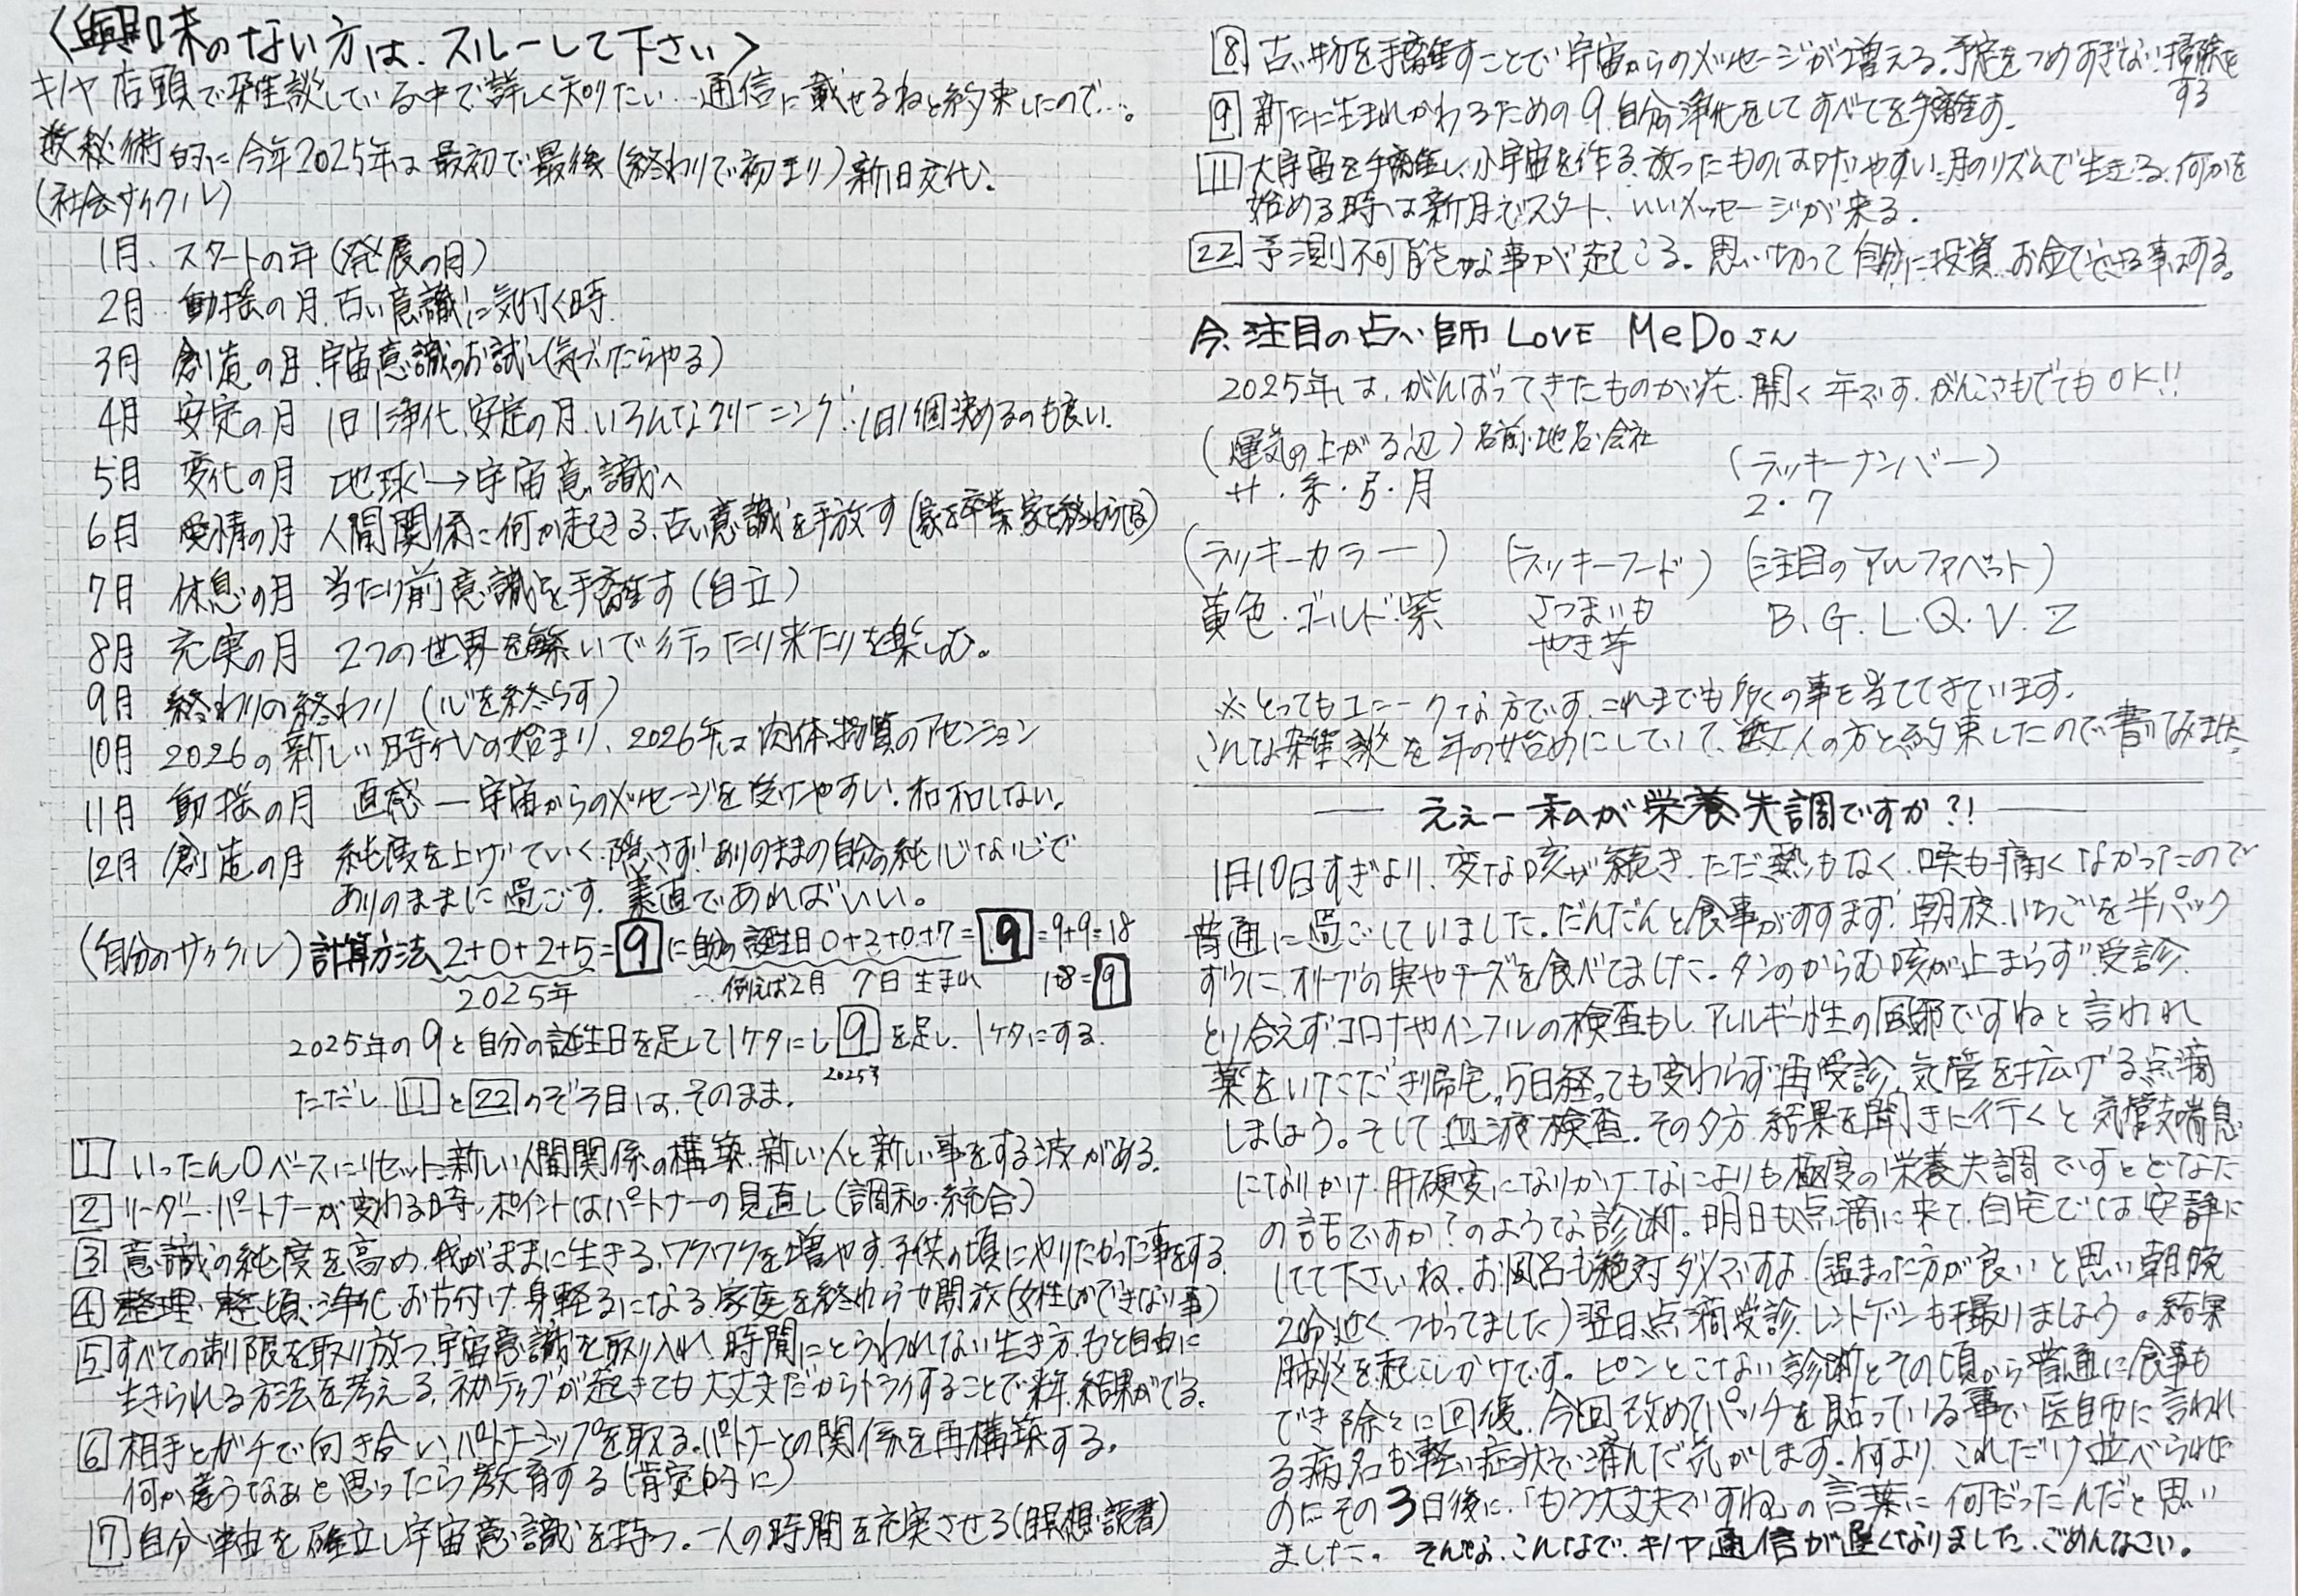 〈興味のない方は、スルーして下さい〉
キノヤ店頭で雑談している中で詳しく知りたい…通信に載せるねと約束したので…。
数秘術的に今年2025年は最初で最後(終わりで初まり)新旧交代。
(社会サイクル)
1月、スタートの年(発展の月)
2月 動揺の月、古い意識に気付く時
3月 創造の月、宇宙意識のお試し(気づいたらやる)
4月 安定の月 1日1浄化、安定の月、いろんなクリーニング、1日1個決めるのも良い。
5月 変化の月 地球→宇宙意識へ
6月 愛情の月 人間関係に何か起きる、古い意識を手放す(家を卒業、家を終わらせる)
7月 休息の月 当たり前意識を手離す(自立)
8月 充実の月 2つの世界を繋いで行ったり来たりを楽しむ。
9月 終わりの終わり(心を終らす)
10月 2026の新しい時代の始まり、2026年は肉体、物質のアセンション
11月 動揺の月 直感―宇宙からのメッセージを受けやすい、否和しない。
12月 創造の月 純度を上げていく、隠さず、ありのままの自分の純心な心で
ありのままに過ごす。素直であればいい。
(自分のサイクル)計算方法 2+0+2+5=9に自分の誕生日0+2+0+7=9=9+9=18
2025年 …例えば2月 7日生まれ 1+8=9
2025年の9と自分の誕生日を足して1ケタにし9を足し、1ケタにする。
2025年
ただし 11と22のぞろ目は、そのまま。
1 いったん0ベースにリセット、新しい人間関係の構築、新しい人と新しい事をする波がある。
2 リーダー・パートナーが変わる時、ポイントはパートナーの見直し(調和・統合)
3 意識の純度を高め、我がままに生きる、ワクワクを増やす、子供の頃にやりたかった事をする
4 整理・整頓、浄化、お片付け、身軽るになる、家庭を終わらせ開放(女性しかできない事)
5 すべての制限を取り放つ、宇宙意識を取り入れ、時間にとらわれない生き方、もと自由に
生きられる方法を考える、ネガティブが起きても大丈夫だからトライすることで来年、結果がでる。
6 相手とガチで向き合い、パートナーシップを取る。パートナーとの関係を再構築する。
何か違うなぁと思ったら教育する(肯定的に)
7 自分軸を確立し宇宙意識を持つ。一人の時間を充実させる(瞑想・読書)
8 古い物を手離すことで宇宙からのメッセージが増える。予定をつめすぎない、掃除を
する
9 新たに生まれかわるための9、自分の浄化をしてすべてを手離す。
11 大宇宙を手離し、小宇宙を作る、放ったものは叶いやすい、月のリズムで生きる、何かを
始める時は新月でスタート、いいメッセージが来る。
22 予測不可能な事が起こる。思い切って自分に投資、お金でできる事はする。
今、注目の占い師 LOVE MeDoさん
2025年は、がんばってきたものが花、開く年です。がんこさもでてもOK!!
(運気の上がる辺)名前・地名・会社
艹・糸・弓・月
(ラッキーナンバー)
2・7
(ラッキーカラー) (ラッキーフード) (注目のアルファベット)
黄色・ゴールド・紫 さつまいも B、G、L・Q・V、Z
やき芋
※とってもユニークな方です。これまでも多くの事を当ててきています。
こんな雑談を年の始めにしていて、数人の方と約束したので書てみました。
― ええー私が栄養失調ですか?! ―
1月10日すぎより、変な咳が続き、ただ熱もなく、喉も痛くなかったので
普通に過ごしていました。だんだんと食事がすすまず、朝夜、いちごを半パック
ずつに、オリーブの実やチーズを食べてました。タンのからむ咳が止まらず受診。
とり合えず、コロナやインフルの検査もし、アレルギー性の風邪ですねと言われ
薬をいただき帰宅。5日経っても変わらず再受診、気管を拡げる点滴
しましょう。そして血液検査。その夕方、結果を聞きに行くと気管支喘息
になりかけ、肝硬変になりかけ、なによりも極度の栄養失調ですとどなた
の話ですか?のような診断。明日も点滴に来て、自宅では安静に
してて下さいね、お風呂も絶対ダメですよ(温まった方が良いと思い朝晩
20分近く、つかってました)翌日、点滴受診、レントゲンも撮りましょう。結果
肺炎を起こしかけです。ピンとこない診断とその頃から普通に食事も
でき除々に回復、今回改めてパッチを貼っている事で、医師に言われ
る病名も軽い症状で済んだ気がします。何より、これだけ並べられた
のにその3日後に、「もう大丈夫ですね」の言葉に何だったんだと思い
ました。 そんな、こんなで、キノヤ通信が遅くなりました、ごめんなさい。